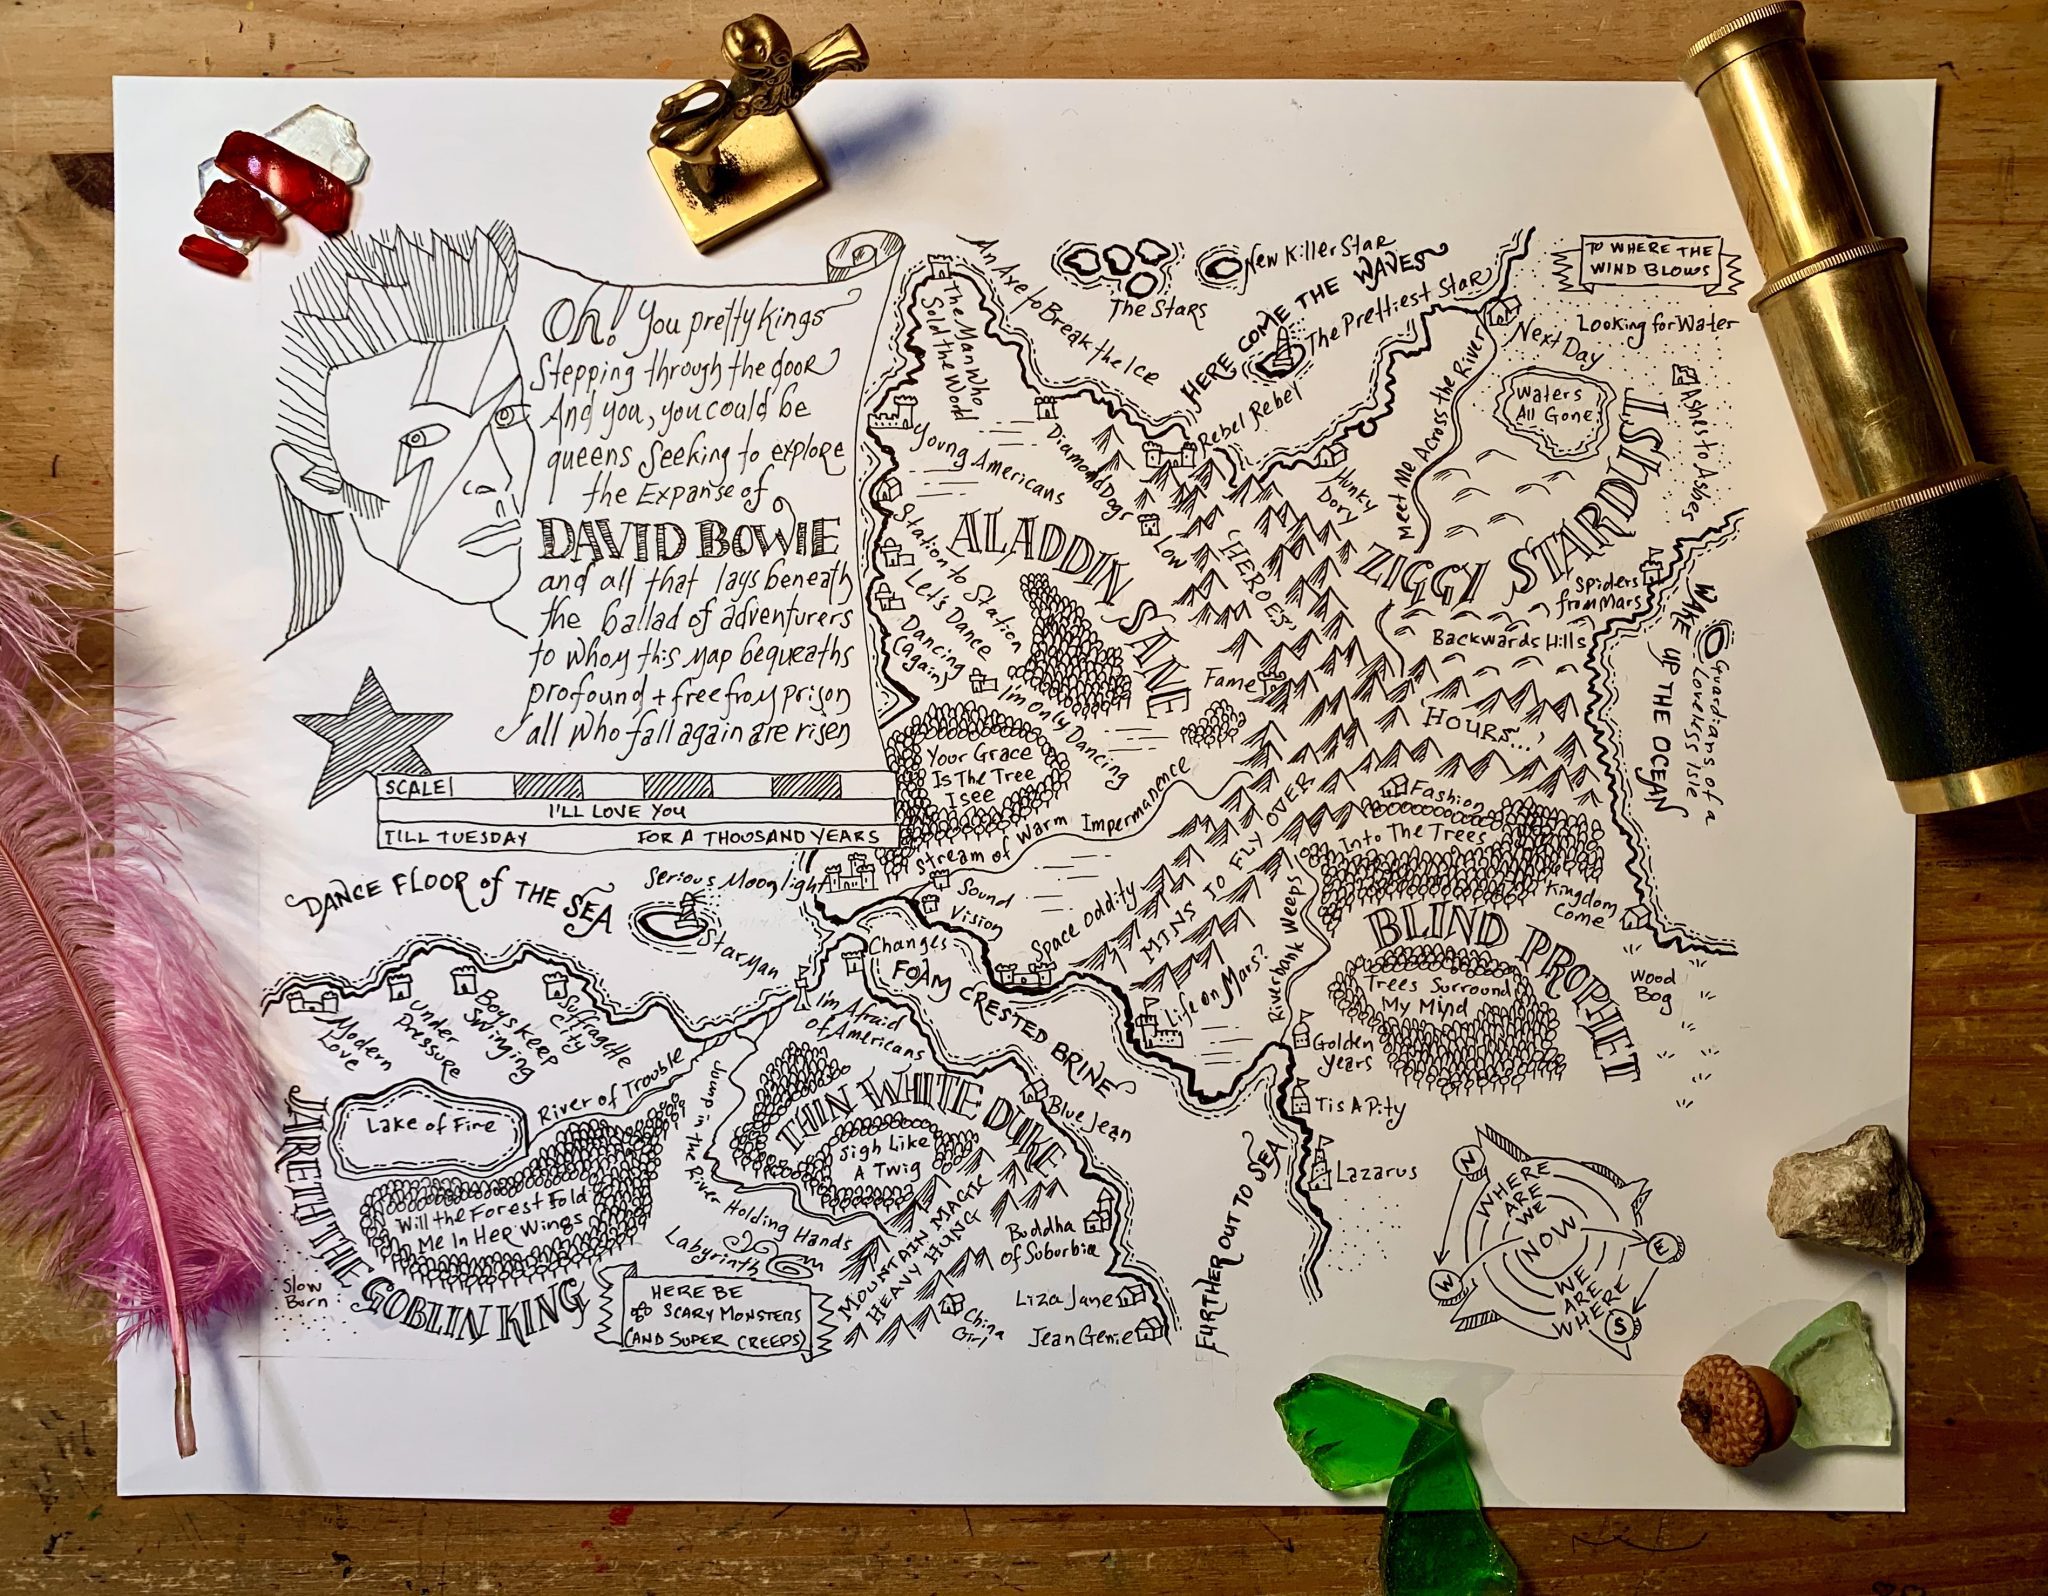 Oh! You pretty Kings
Stepping through the door
And you, you could be
queens seeking to explore
the Expanse of
DAVID BOWIE
and all that lays beneath
the ballad of adventurers
to whom this map bequeaths
profound + free from prison
all who fall again are risen
SCALE
I'LL LOVE YOU
TILL TUESDAY FOR A THOUSAND YEARS
An Axe to Break the Ice
The Stars
New Killer Star
HERE COME THE WAVES
The Prettiest Star
TO WHERE THE
WIND BLOWS
Looking for Water
Next Day
Waters
All Gone
Ashes to Ashes
The Man Who
Sold the World
Young Americans
Diamond Dogs
Rebel Rebel
Hunky
Dory
Meet Me Across the River
Low
"HEROES"
ZIGGY STARDUST
Station to Station
Let's Dance
Dancing
(again)
I'm Only Dancing
ALADDIN SANE
Fame
Spiders
from Mars
Backwards Hills
WAKE UP THE OCEAN
Guardians of a
Loveless Isle
'HOURS...'
Your Grace
Is The Tree
I see
Stream of Warm Impermanence
Fashion
Into The Trees
Kingdom
Come
BLIND PROPHET
Trees Surround
My Mind
Wood
Bog
Sound
Vision
Space Oddity
MTNS TO FLY OVER
Life on Mars?
Riverbank Weeps
Golden
Years
Tis A Pity
Lazarus
DANCE FLOOR of THE SEA
Serious Moonlight
Starman
Changes
FOAM CRESTED BRINE
I'm Afraid
of Americans
Modern
Love
Under
Pressure
Boys Keep
Swinging
Suffragette
City
River of Trouble
Lake of Fire
JARETH THE GOBLIN KING
Will the Forest Fold
Me In Her Wings
Slow
Burn
Jump in the River Holding Hands
THIN WHITE DUKE
Sigh Like
A Twig
Blue Jean
Labyrinth
HERE BE
SCARY MONSTERS
(AND SUPER CREEPS)
MOUNTAIN MAGIC
HEAVY HUNG
Buddha
of Suburbia
China
Girl
Liza Jane
Jean Genie
FURTHER OUT TO SEA
N
WHERE
ARE
WE
NOW
WE
ARE
WHERE
W
E
S